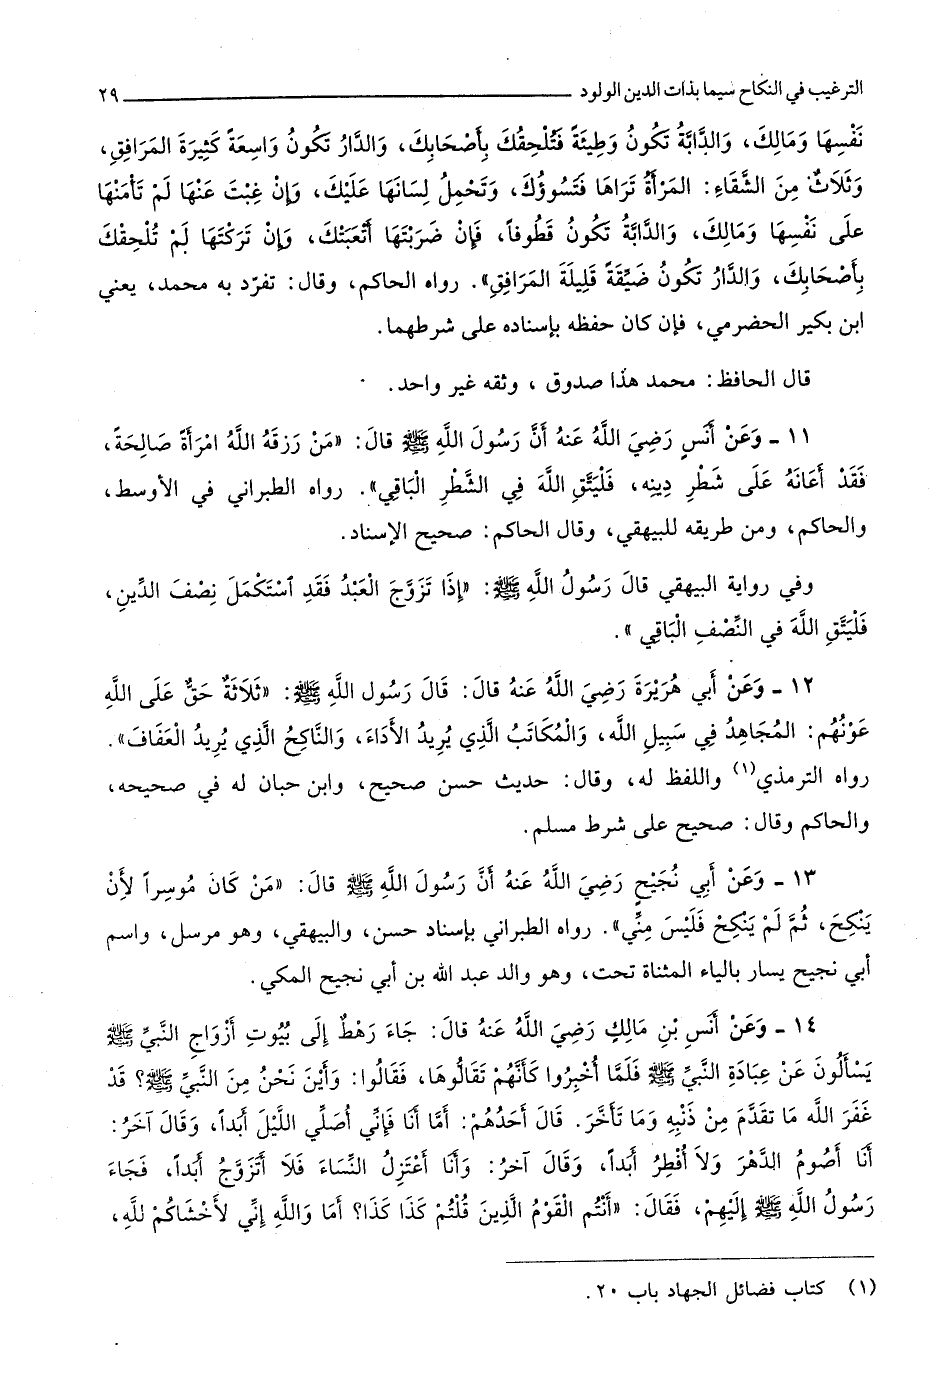 الترغيب في النكاح سيما بذات الدين الولود ٢٩
نَفْسِهَا وَمَالِكَ، وَالدَّابَّةُ تَكُونُ وَطِيئَةً فَتُلْحِقُكَ بِأَصْحَابِكَ، وَالدَّارُ تَكُونُ وَاسِعَةً كَثِيرَةَ المَرَافِقِ،
وَثَلَاثٌ مِنَ الشَّقَاءِ: المَرْأَةُ تَرَاهَا فَتَسُوؤُكَ، وَتَحْمِلُ لِسَانَهَا عَلَيْكَ، وَإِنْ غِبْتَ عَنْهَا لَمْ تَأْمَنْهَا
عَلَى نَفْسِهَا وَمَالِكَ، وَالدَّابَّةُ تَكُونُ قَطُوفاً، فَإِنْ ضَرَبْتَهَا أَتْعَبَتْكَ، وَإِنْ تَرَكْتَهَا لَمْ تُلْحِقْكَ
بِأَصْحَابِكَ، وَالدَّارُ تَكُونُ ضَيِّقَةً قَلِيلَةَ المَرَافِقِ». رواه الحاكم، وقال: تفرّد به محمد، يعني
ابن بكير الحضرمي، فإن كان حفظه بإسناده على شرطهما.
قال الحافظ: محمد هذا صدوق، وثقه غير واحد.
١١ ـ وَعَنْ أَنَسٍ رَضِيَ اللَّهُ عَنهُ أَنَّ رَسُولَ اللَّهِ ﷺ قالَ: «مَنْ رَزقَهُ اللَّهُ امْرَأَةً صَالِحَةً،
فَقَدْ أَعَانَهُ عَلَى شَطْرِ دِينِهِ، فَلْيَتَّقِ اللَّهَ فِي الشَّطْرِ الْبَاقِي». رواه الطبراني في الأوسط،
والحاكم، ومن طريقه للبيهقي، وقال الحاكم: صحيح الإسناد.
وفي رواية البيهقي قالَ رَسُولُ اللَّهِ ﷺ: «إِذَا تَزَوَّجَ الْعَبْدُ فَقَدِ ٱسْتَكْمَلَ نِصْفَ الدِّينِ،
فَلْيَتَّقِ اللَّهَ في النِّصْفِ الْبَاقِي».
١٢ ـ وَعَنْ أَبي هُرَيْرَةَ رَضِيَ اللَّهُ عَنهُ قالَ: قَالَ رَسُول اللَّهِ ﷺ: «ثَلَاثَةٌ حَقٌّ عَلَى اللَّهِ
عَوْنُهُم: المُجَاهِدُ فِي سَبِيلِ اللَّه، وَالْمُكَاتَبُ الَّذِي يُرِيدُ الأَدَاءَ، وَالنَّاكِحُ الَّذِي يُرِيدُ الْعَفَافَ».
رواه الترمذي(١) واللفظ له، وقال: حديث حسن صحيح، وابن حبان له في صحيحه،
والحاكم وقال: صحيح على شرط مسلم.
١٣ ـ وَعَنْ أَبِي نُجَيْحٍ رَضِيَ اللَّهُ عَنهُ أَنَّ رَسُولَ اللَّهِ ﷺ قالَ: «مَن كَانَ مُوسِراً لأَنْ
يَنْكِحَ، ثُمَّ لَمْ يَنْكِحْ فَلَيْسَ مِنِّي». رواه الطبراني بإسناد حسن، والبيهقي، وهو مرسل، واسم
أبي نجيح يسار بالياء المثناة تحت، وهو والد عبد الله بن أبي نجيح المكي.
١٤ ـ وَعَنْ أَنَسِ بْنِ مَالِكٍ رَضِيَ اللَّهُ عَنْهُ قالَ: جَاءَ رَهْطٌ إِلَى بُيُوتِ أَزْوَاجِ النَّبِيِّ ﷺ
يَسْأَلُونَ عَنْ عِبَادَةِ النَّبِيِّ ﷺ فَلَمَّا أُخْبِرُوا كَأَنَّهُمْ تَقَالُّوهَا، فَقَالُوا: وَأَيْنَ نَحْنُ مِنَ النَّبِيِّ ﷺ؟ قَدْ
غَفَرَ اللَّه مَا تَقَدَّمَ مِنْ ذَنْبِهِ وَمَا تَأَخَّرَ. قَالَ أَحَدُهُمْ: أَمَّا أَنَا فَإِنِّي أُصَلِّي اللَّيْلَ أَبَداً، وَقَالَ آخَرُ:
أَنَا أَصُومُ الدَّهْرَ وَلاَ أُفْطِرُ أَبَداً، وَقَالَ آخرُ: وَأَنَا أَعْتَزِلُ النِّسَاءَ فَلَا أَتَزَوَّجُ أَبَداً، فَجَاءَ
رَسُولُ اللَّهِ ﷺ إِلَيْهِمْ، فَقَالَ: «أَنْتُم الْقَوْمُ الَّذِينَ قُلْتُمْ كَذَا كَذَا؟ أَمَا وَاللَّهِ إِنِّي لأَخْشَاكُمْ للَّهِ،
(١) كتاب فضائل الجهاد باب ٢٠.